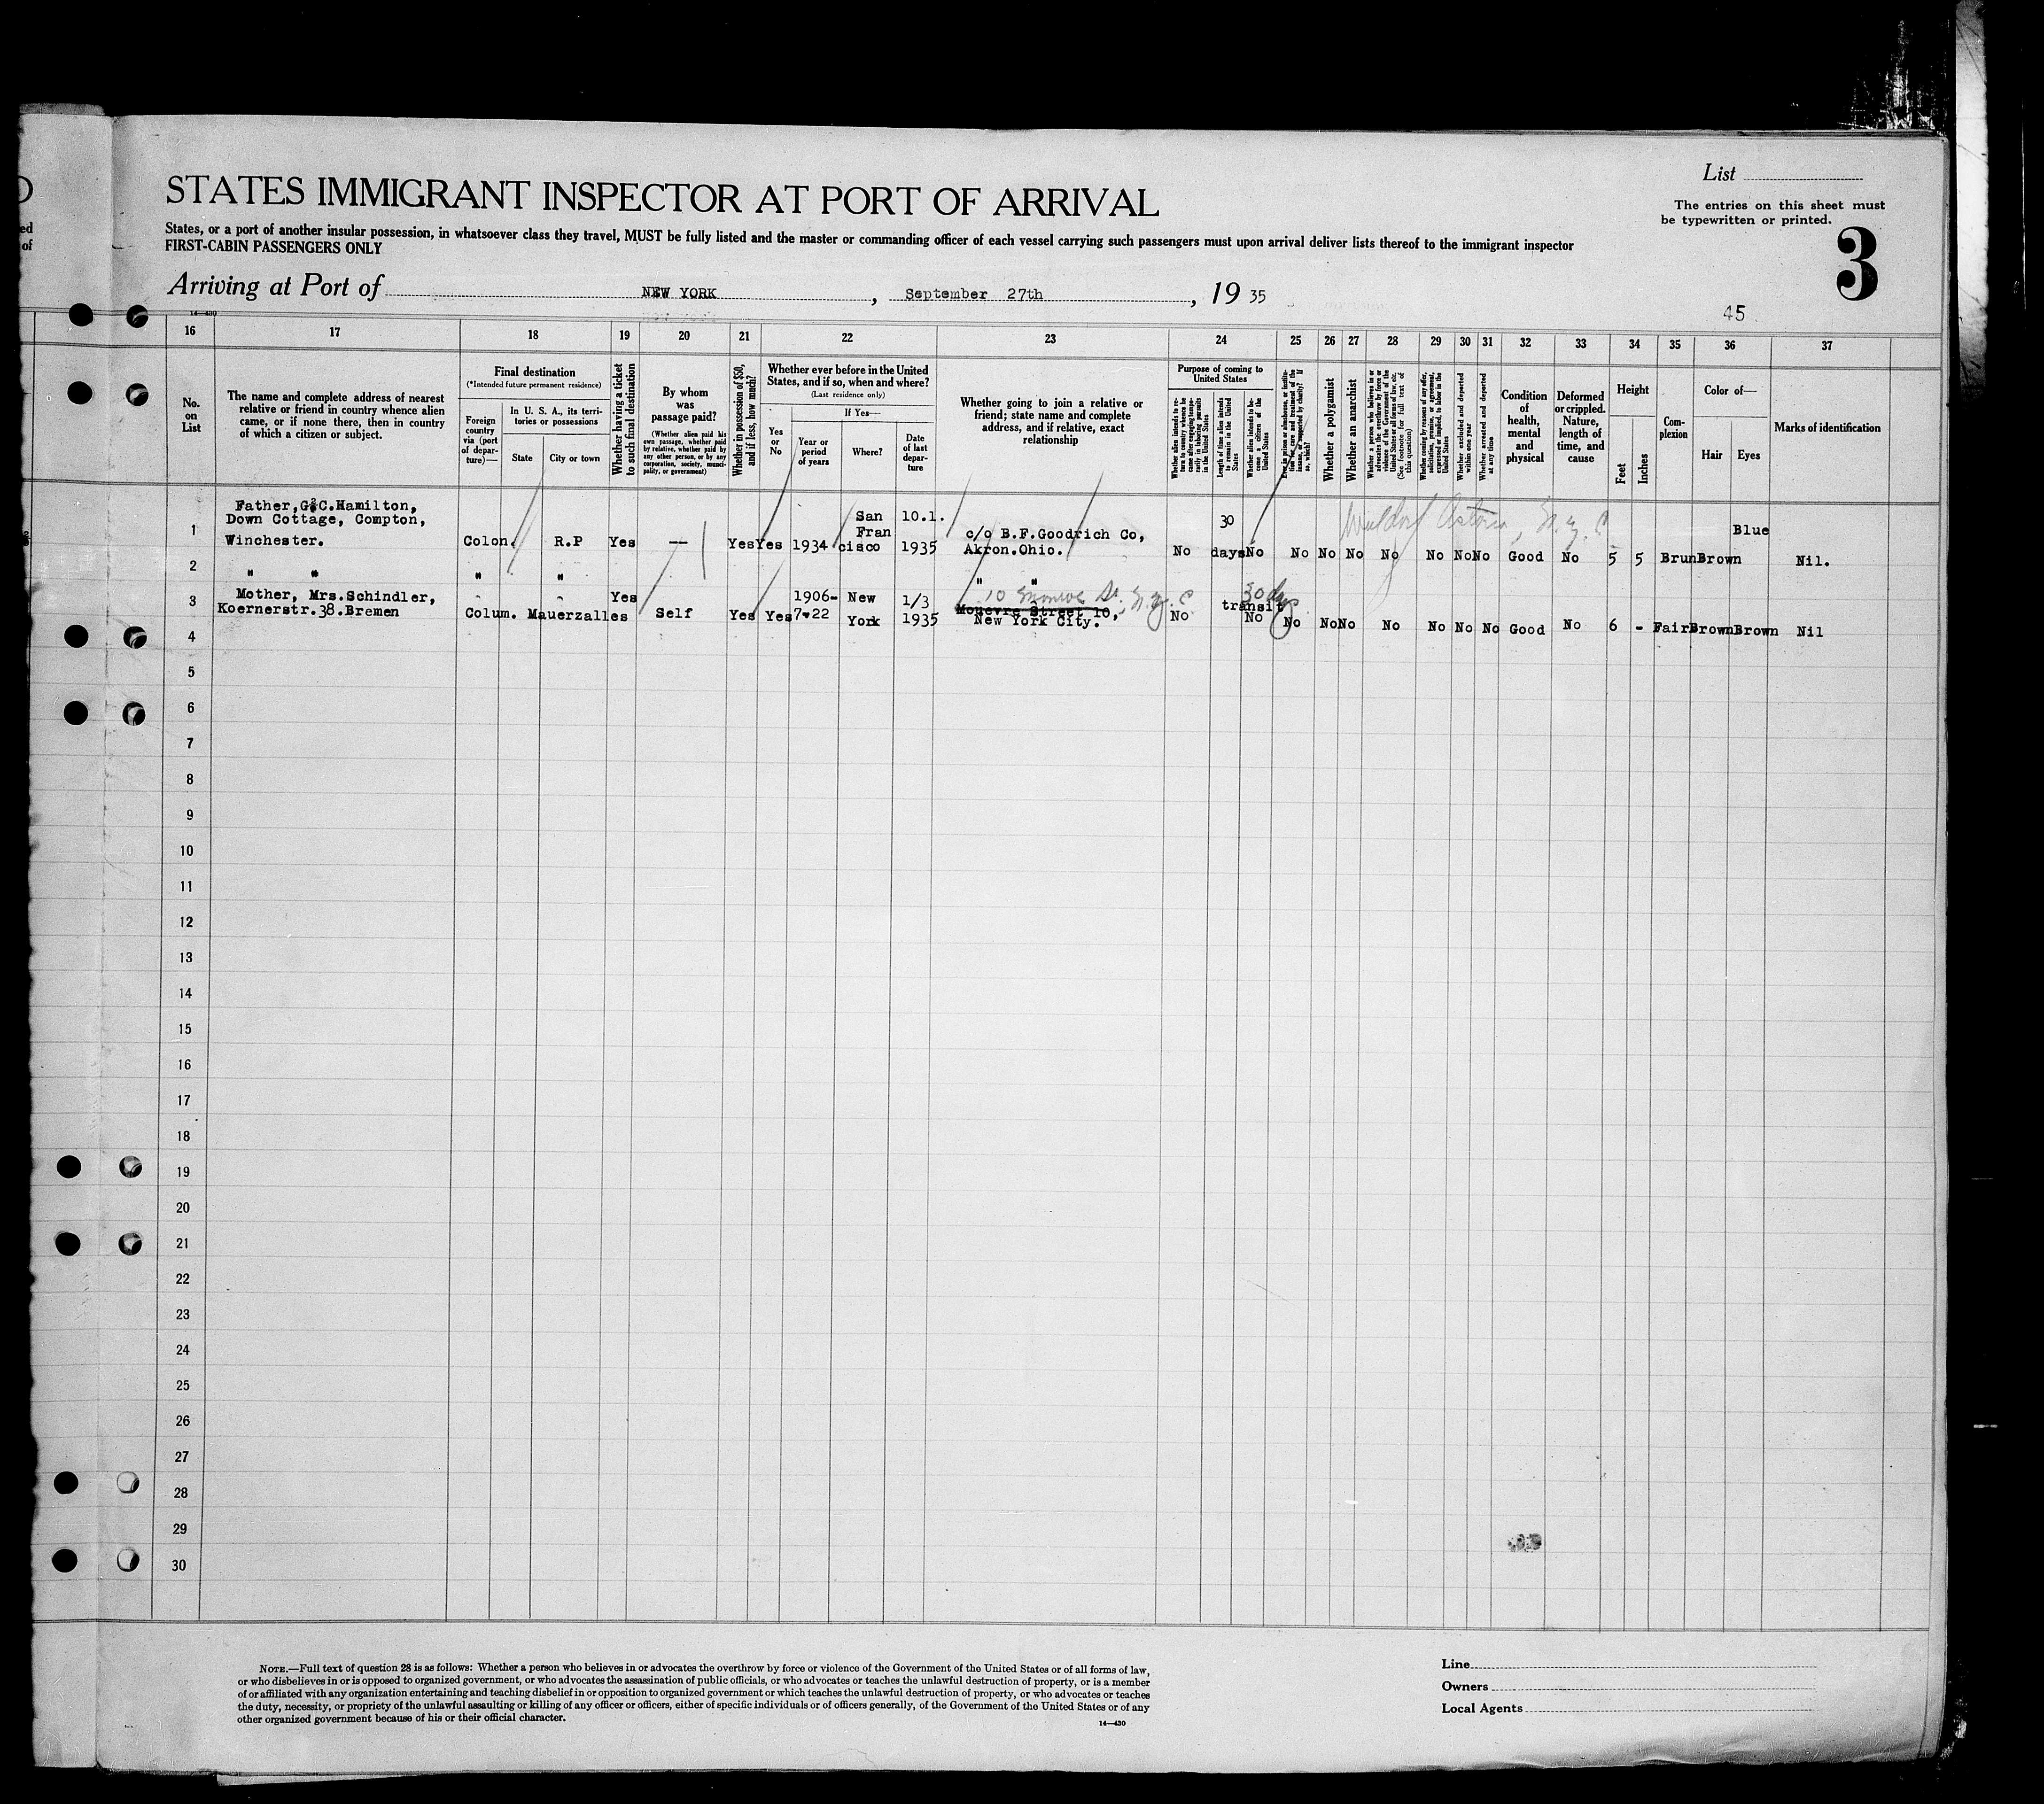 D
ed
of
STATES IMMIGRANT INSPECTOR AT PORT OF ARRIVAL
States, or a port of another insular possession, in whatsoever class they travel, MUST be fully listed and the master or commanding officer of each vessel carrying such passengers must upon arrival deliver lists thereof to the immigrant inspector
FIRST-CABIN PASSENGERS ONLY
List
The entries on this sheet must
be typewritten or printed.
3
Arriving at Port of NEW YORK, September 27th, 19 35
45
14—430
16 17 18 19 20 21 22 23 24 25 26 27 28 29 30 31 32 33 34 35 36 37
No.
on
List
The name and complete address of nearest
relative or friend in country whence alien
came, or if none there, then in country
of which a citizen or subject.
Final destination
(*Intended future permanent residence)
Foreign
country
via (port
of depar-
ture)—
In U. S. A., its terri-
tories or possessions
State
City or town
Whether having a ticket
to such final destination
By whom
was
passage paid?
(Whether alien paid his
own passage, whether paid
by relative, whether paid by
any other person, or by any
corporation, society, munici-
pality, or government)
Whether in possession of $50,
and if less, how much?
Whether ever before in the United
States, and if so, when and where?
(Last residence only)
Yes
or
No
If Yes—
Year or
period
of years
Where?
Date
of last
depar-
ture
Whether going to join a relative or
friend; state name and complete
address, and if relative, exact
relationship
Purpose of coming to
United States
Whether alien intends to re-
turn to country whence he
came after engaging tempo-
rarily in laboring pursuits
in the United States
Length of time alien intends
to remain in the United
States
Whether alien intends to be-
come a citizen of the
United States
Ever in prison or almshouse, or institu-
tion for care and treatment of the
insane, or supported by charity? If
so, which?
Whether a polygamist
Whether an anarchist
Whether a person who believes in or
advocates the overthrow by force or
violence of the Government of the
United States or all forms of law, etc.
(See footnote for full text of
this question)
Whether coming by reasons of any offer,
solicitation, promise, or agreement,
expressed or implied, to labor in the
United States
Whether excluded and deported
within one year
Whether arrested and deported
at any time
Condition
of
health,
mental
and
physical
Deformed
or crippled.
Nature,
length of
time, and
cause
Height
Feet
Inches
Com-
plexion
Color of—
Hair
Eyes
Marks of identification
Waldorf Astoria, N.Y.C
1
Father, G.C.Hamilton,
Down Cottage, Compton,
Winchester.
Colon. R.P Yes — Yes Yes 1934
San
Fran
cisco
10.1.
1935
c/o B.F.Goodrich Co,
Akron.Ohio.
No
30
days
No No No No No No No No Good No 5 5 Brun Brown
Blue
Nil.
2
" " " " " "
3
Mother, Mrs.Schindler,
Koernerstr.38.Bremen
Colum. Mauerzalles
Yes
Self Yes Yes
1906-
7-22
New
York
1/3
1935
10 Monroe St. N.Y.C
New York City.
No
30 days
transit
No No No No No No No No Good No 6 - Fair Brown Brown Nil
4
5
6
7
8
9
10
11
12
13
14
15
16
17
18
19
20
21
22
23
24
25
26
27
28
29
30
NOTE.—Full text of question 28 is as follows: Whether a person who believes in or advocates the overthrow by force or violence of the Government of the United States or of all forms of law,
or who disbelieves in or is opposed to organized government, or who advocates the assassination of public officials, or who advocates or teaches the unlawful destruction of property, or is a member
of or affiliated with any organization entertaining and teaching disbelief in or opposition to organized government or which teaches the unlawful destruction of property, or who advocates or teaches
the duty, necessity, or propriety of the unlawful assaulting or killing of any officer or officers, either of specific individuals or of officers generally, of the Government of the United States or of any
other organized government because of his or their official character.
14—430
Line
Owners
Local Agents